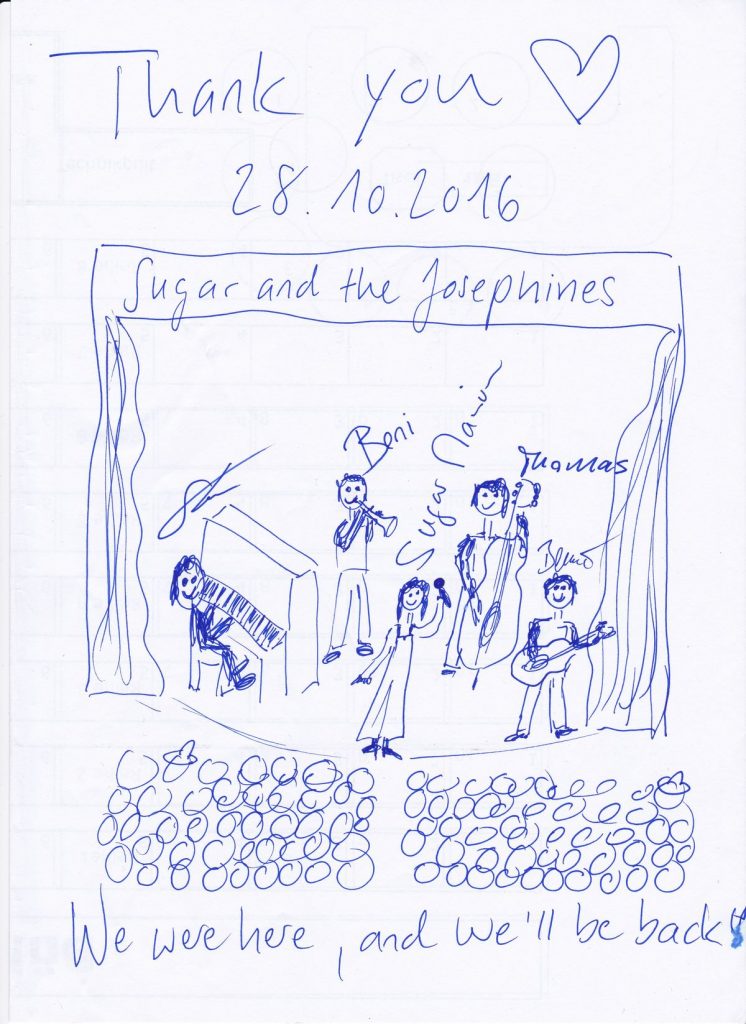 Thank you
28.10.2016
Sugar and the Josephines
Beni
Sugar
Thomas
We were here, and we'll be back!